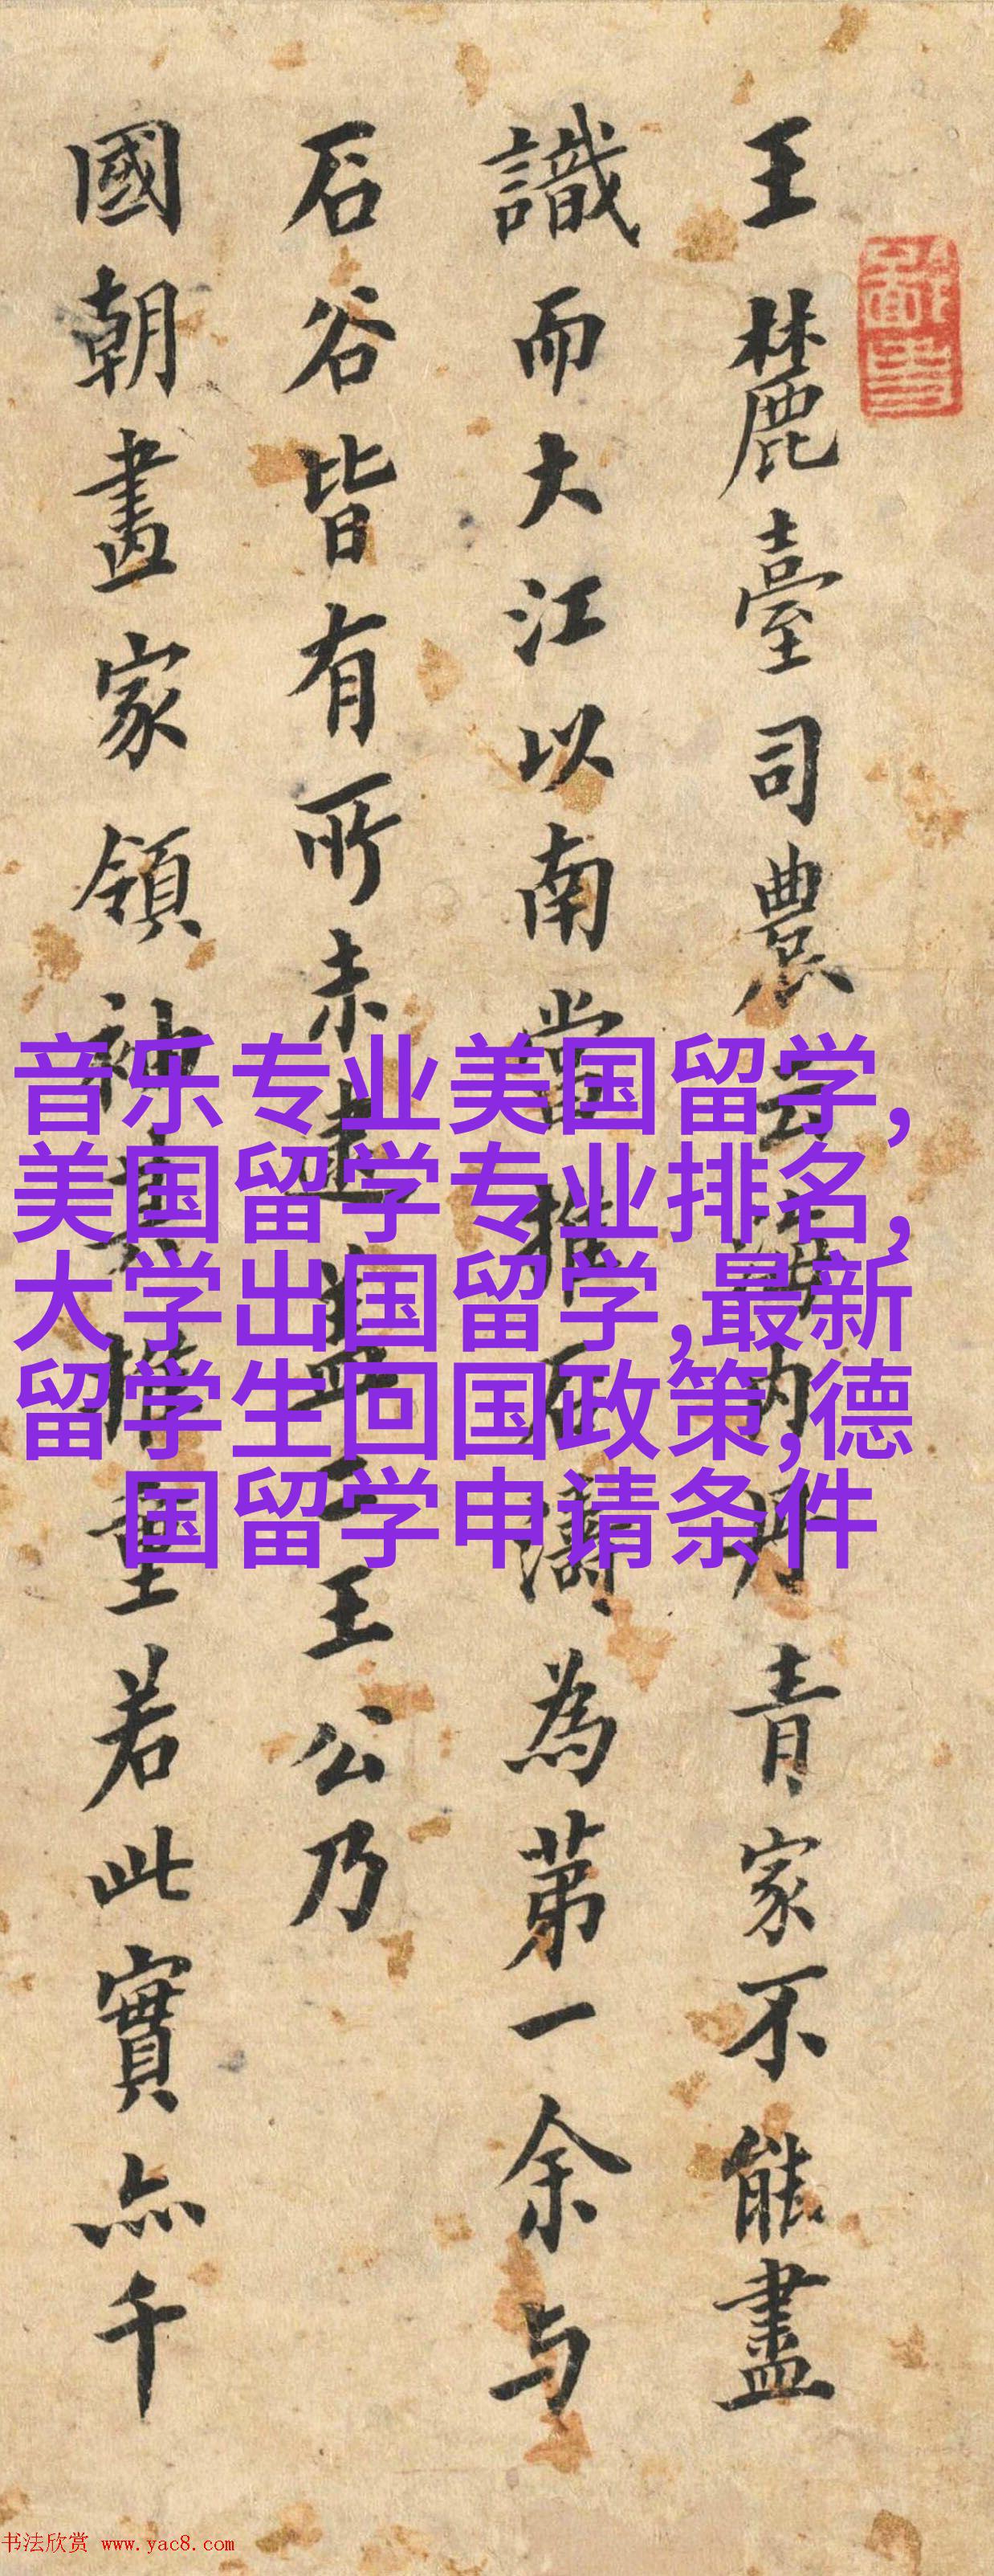 王麓臺司農云海内丹青家不能盡
識而大江以南當推石濤為第一余与
石谷皆有所未逮盖二王公乃
國朝畫家領袖其推重若此實亦千
音乐专业美国留学,
美国留学专业排名,
大学出国留学,最新
留学生回国政策,德
国留学申请条件
书法欣赏 www.yac8.com